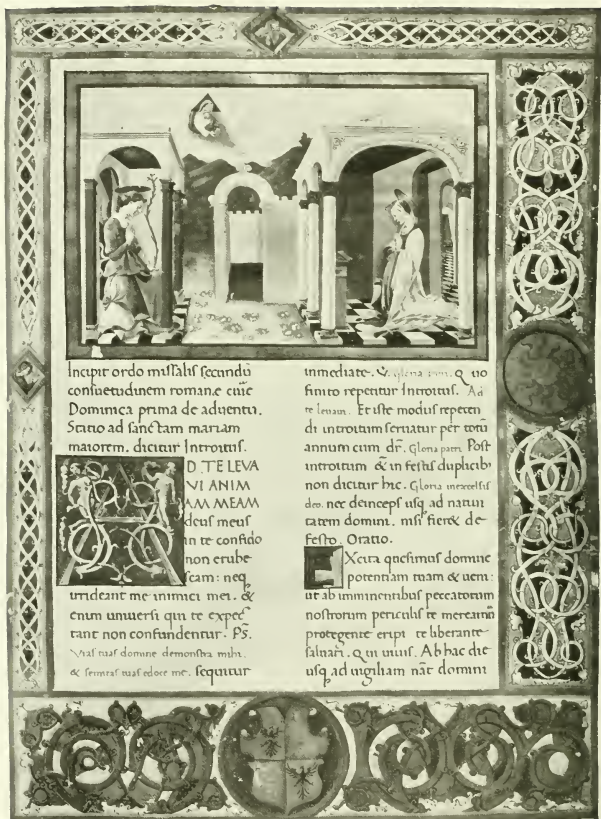 Incipit ordo missalis secundũ
consuetudinem romanæ curiæ
Dominica prima de aduentu.
Statio ad sanctam mariam
maiorem. dicitur Introitus.
AD. TE LEVA
VI ANIM
AM MEAM
deus meus
in te confido
non erube
scam: neq
irrideant me inimici mei. &
enim uniuersi qui te expec
tant non confundentur. PS.
Vias tuas domine demonstra mihi.
& semitas tuas edoce me. sequitur
inmediate. V. gloria patri. Q uo
finito repetitur Introitus. Ad
te leuaui. Et iste modus repeten
di introitum seruatur per totũ
annum cum dr̃. Gloria patri. Post
introitum & in festis duplicibꝰ
non dicitur hic. Gloria in excelsis
deo. nec deinceps usq ad natiui
tatem domini. nisi fieret de
festo. Oratio.
EXcita quesimus domine
potentiam tuam & ueni:
ut ab imminentibus peccatorum
nostrorum periculis te mereamũ
protegente eripi te liberante
saluari. Q ui uiuis. Ab hac die
usq ad uigiliam nat̃ domini